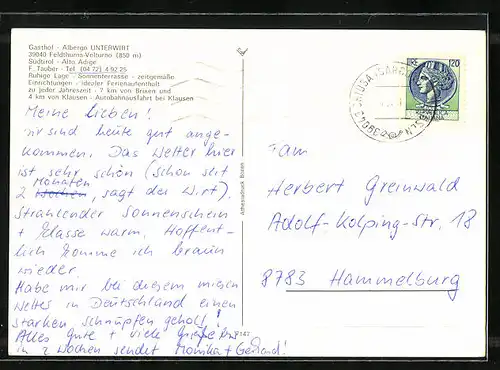 Gasthof - Albergo UNTERWIRT
39040 Feldthurns-Velturno (850 m)
Südtirol - Alto Adige
F. Tauber - Tel. (04 72) 4 92 25
Ruhige Lage - Sonnenterrasse - zeitgemäße
Einrichtungen - idealer Ferienaufenthalt
zu jeder Jahreszeit - 7 km von Brixen und
4 km von Klausen - Autobahnausfahrt bei Klausen
Meine Lieben!
Wir sind heute gut ange-
kommen. Das Wetter hier
ist sehr schön (schon seit
Monaten
2 Wochen, sagt der Wirt).
Strahlender Sonnenschein
+ klasse warm. Hoffent-
lich komme ich braun
wieder.
Habe mir bei diesem miesen
Wetter in Deutschland einen
starken Schnupfen geholt!
Alles Gute + viele Grüße bis
in 2 Wochen sendet Monika + Gerhard!
Adhesivdruck Bozen
142
39043 CHIUSA
LIRE 120
Fam
Herbert Greinwald
Adolf-Kolping-Str. 18
8783 Hammelburg